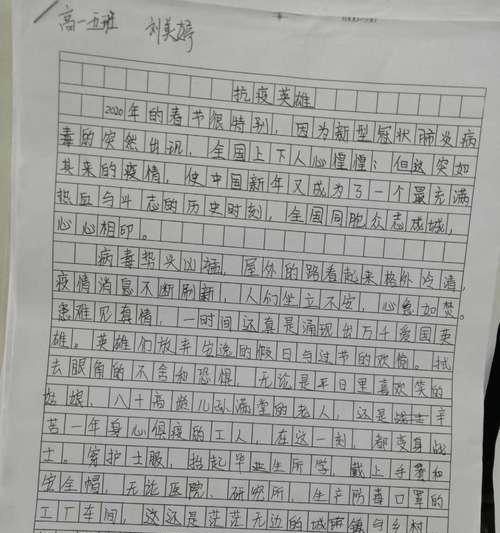 高一五班 刘美婷
抗疫英雄
2020年的春节很特别，因为新型冠状肺炎病
毒的突然出现，全国上下人心惶惶；但这突如
其来的疫情，使中国新年又成为了一个最充满
热血与斗志的历史时刻，全国同胞众志成城，
心心相印。
病毒势头凶猛，屋外的路看起来格外冷清，
疫情消息不断刷新，人们坐立不安，心急如焚。
患难见真情，一时间还真是涌现出万千爱国英
雄。英雄们放弃安逸的假日与过节的欢愉。拭
去眼角的不舍和恐惧，无论是平日里喜欢笑的
姑娘，八十高龄儿孙满堂的老人，还是辛
苦一年身心俱疲的工人，在这一刻，都变身战
士。穿护士服，抬起毕业生所学，戴上手套和
安全帽，无论医院、研究所，生产防毒口罩的
工厂车间，还是茫茫无边的城镇与乡村